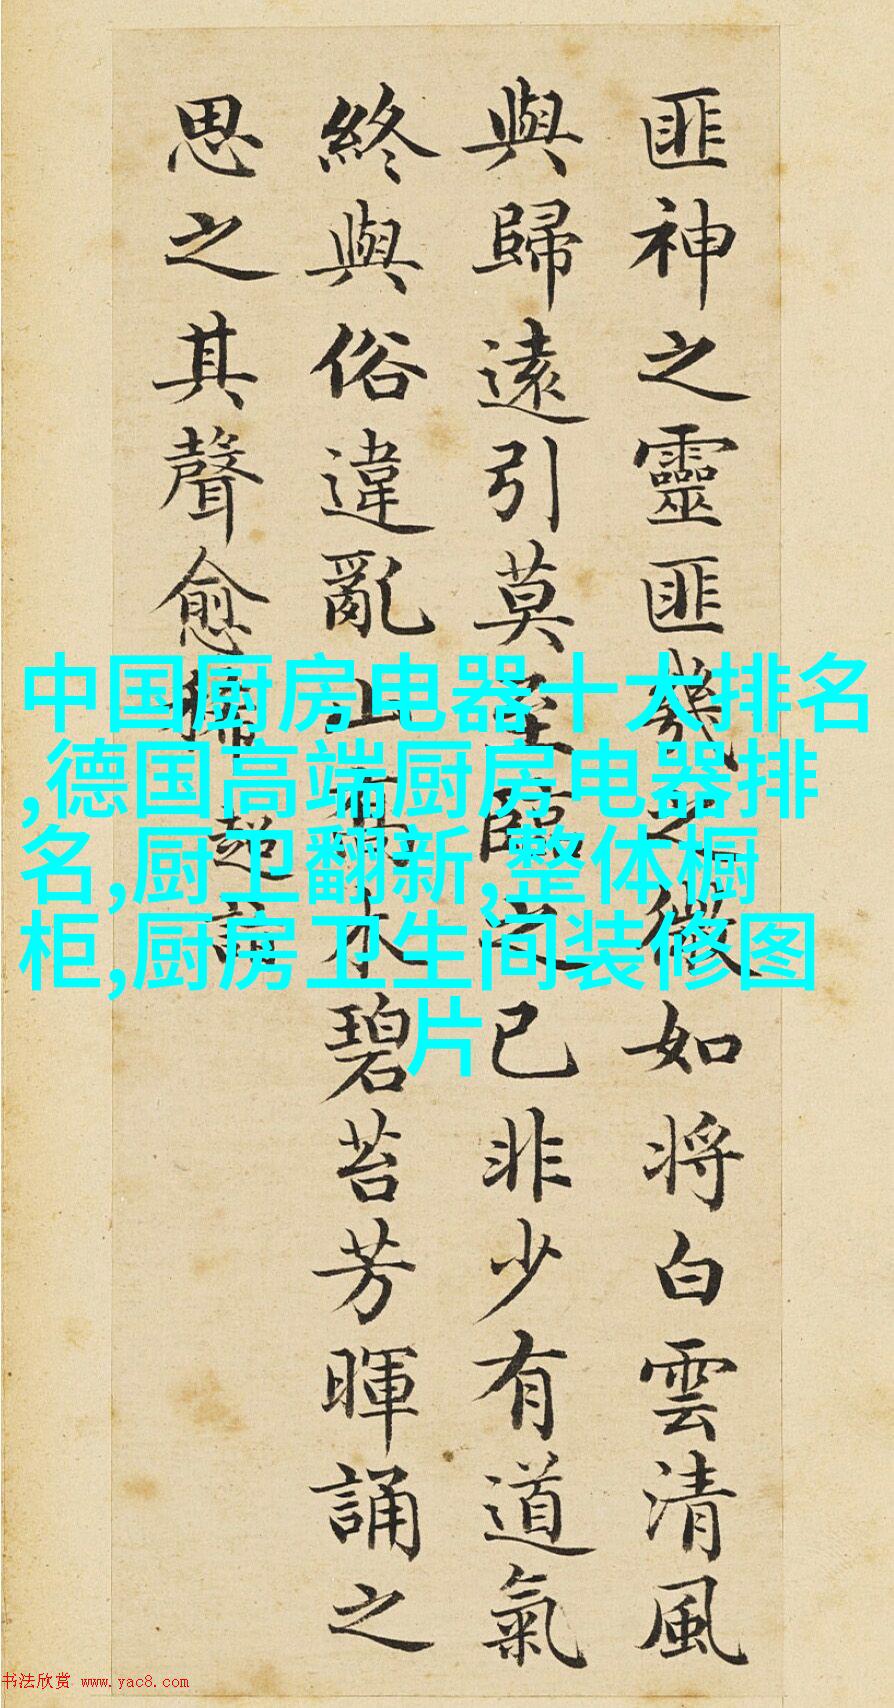 匪神之靈匪幾之微如將白雲清風
與歸遠引莫至臨之已非少有道氣
終與俗違亂山喬木碧苔芳暉誦之
思之其聲愈稀 超詣
中国厨房电器十大排名
,德国高端厨房电器排
名,厨卫翻新,整体橱
柜,厨房卫生间装修图
片
书法欣赏 www.yac8.com